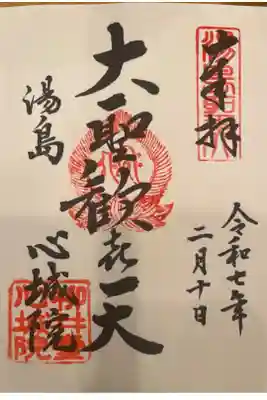 奉拝
令和七年
二月十日
大聖歓喜天
湯島
心城院